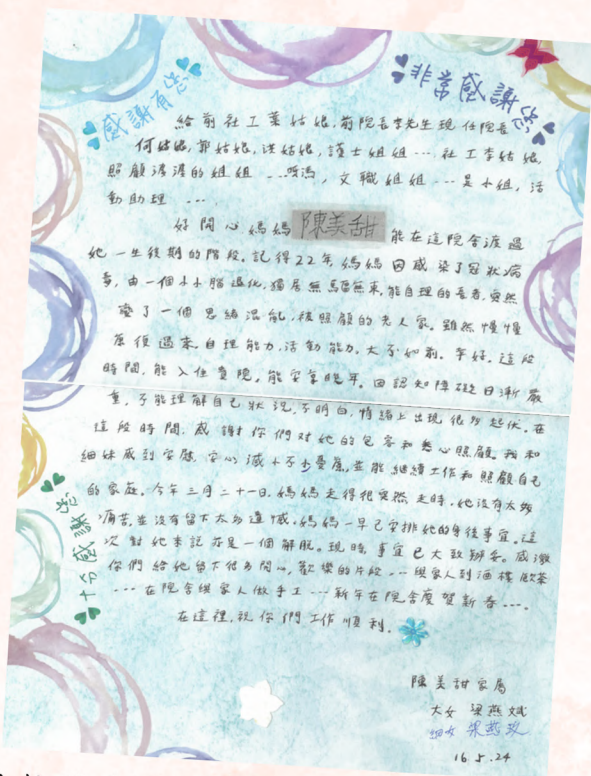 感謝有您
非常感謝您
給前社工葉姑娘,前院長李先生現任院長
何姑娘,郭姑娘,洪姑娘,護士姐姐…社工李姑娘
照顧婆婆的姐姐…
文職姐姐…吳小姐,活
動助理….
好開心媽媽陳美甜能在這院舍渡過
她一生後期的階段。記得22年,媽媽因感染了冠狀病
毒,由一個小小腦退化,獨居無驅無束,能自理的長者,突然
變了一個思緒混亂,被照顧的老人家。雖然慢慢
康復過來自理能力,活動能力,大不如前。幸好,這段
時間,能入住貴院,能安享晚年。因認知障礙日漸嚴
重,不能理解自己狀況,不明白,情緒上出現很多起伏。在
這段時間,感謝你們對她的包容和悉心照顧。我和
細妹感到安慰,安心減小不少憂慮。並能繼續工作和照顧自己
的家庭。今年三月二十一日,媽媽走得很突然走時,她沒有太多
痛苦,並沒有留下太多遺憾,媽媽一早已安排她的身後事宜。這
次對她來說亦是一個解脫。現時,事宜已大致辦妥。感激
你們給她留下很多開心,歡樂的片段…與家人到酒樓飲茶
…在院舍與家人做手工…新年在院舍慶賀新春….
在這裡,祝你們工作順利。
十分感謝您
陳美甜家屬
大女 梁燕
細女 梁燕玫
16.5.24